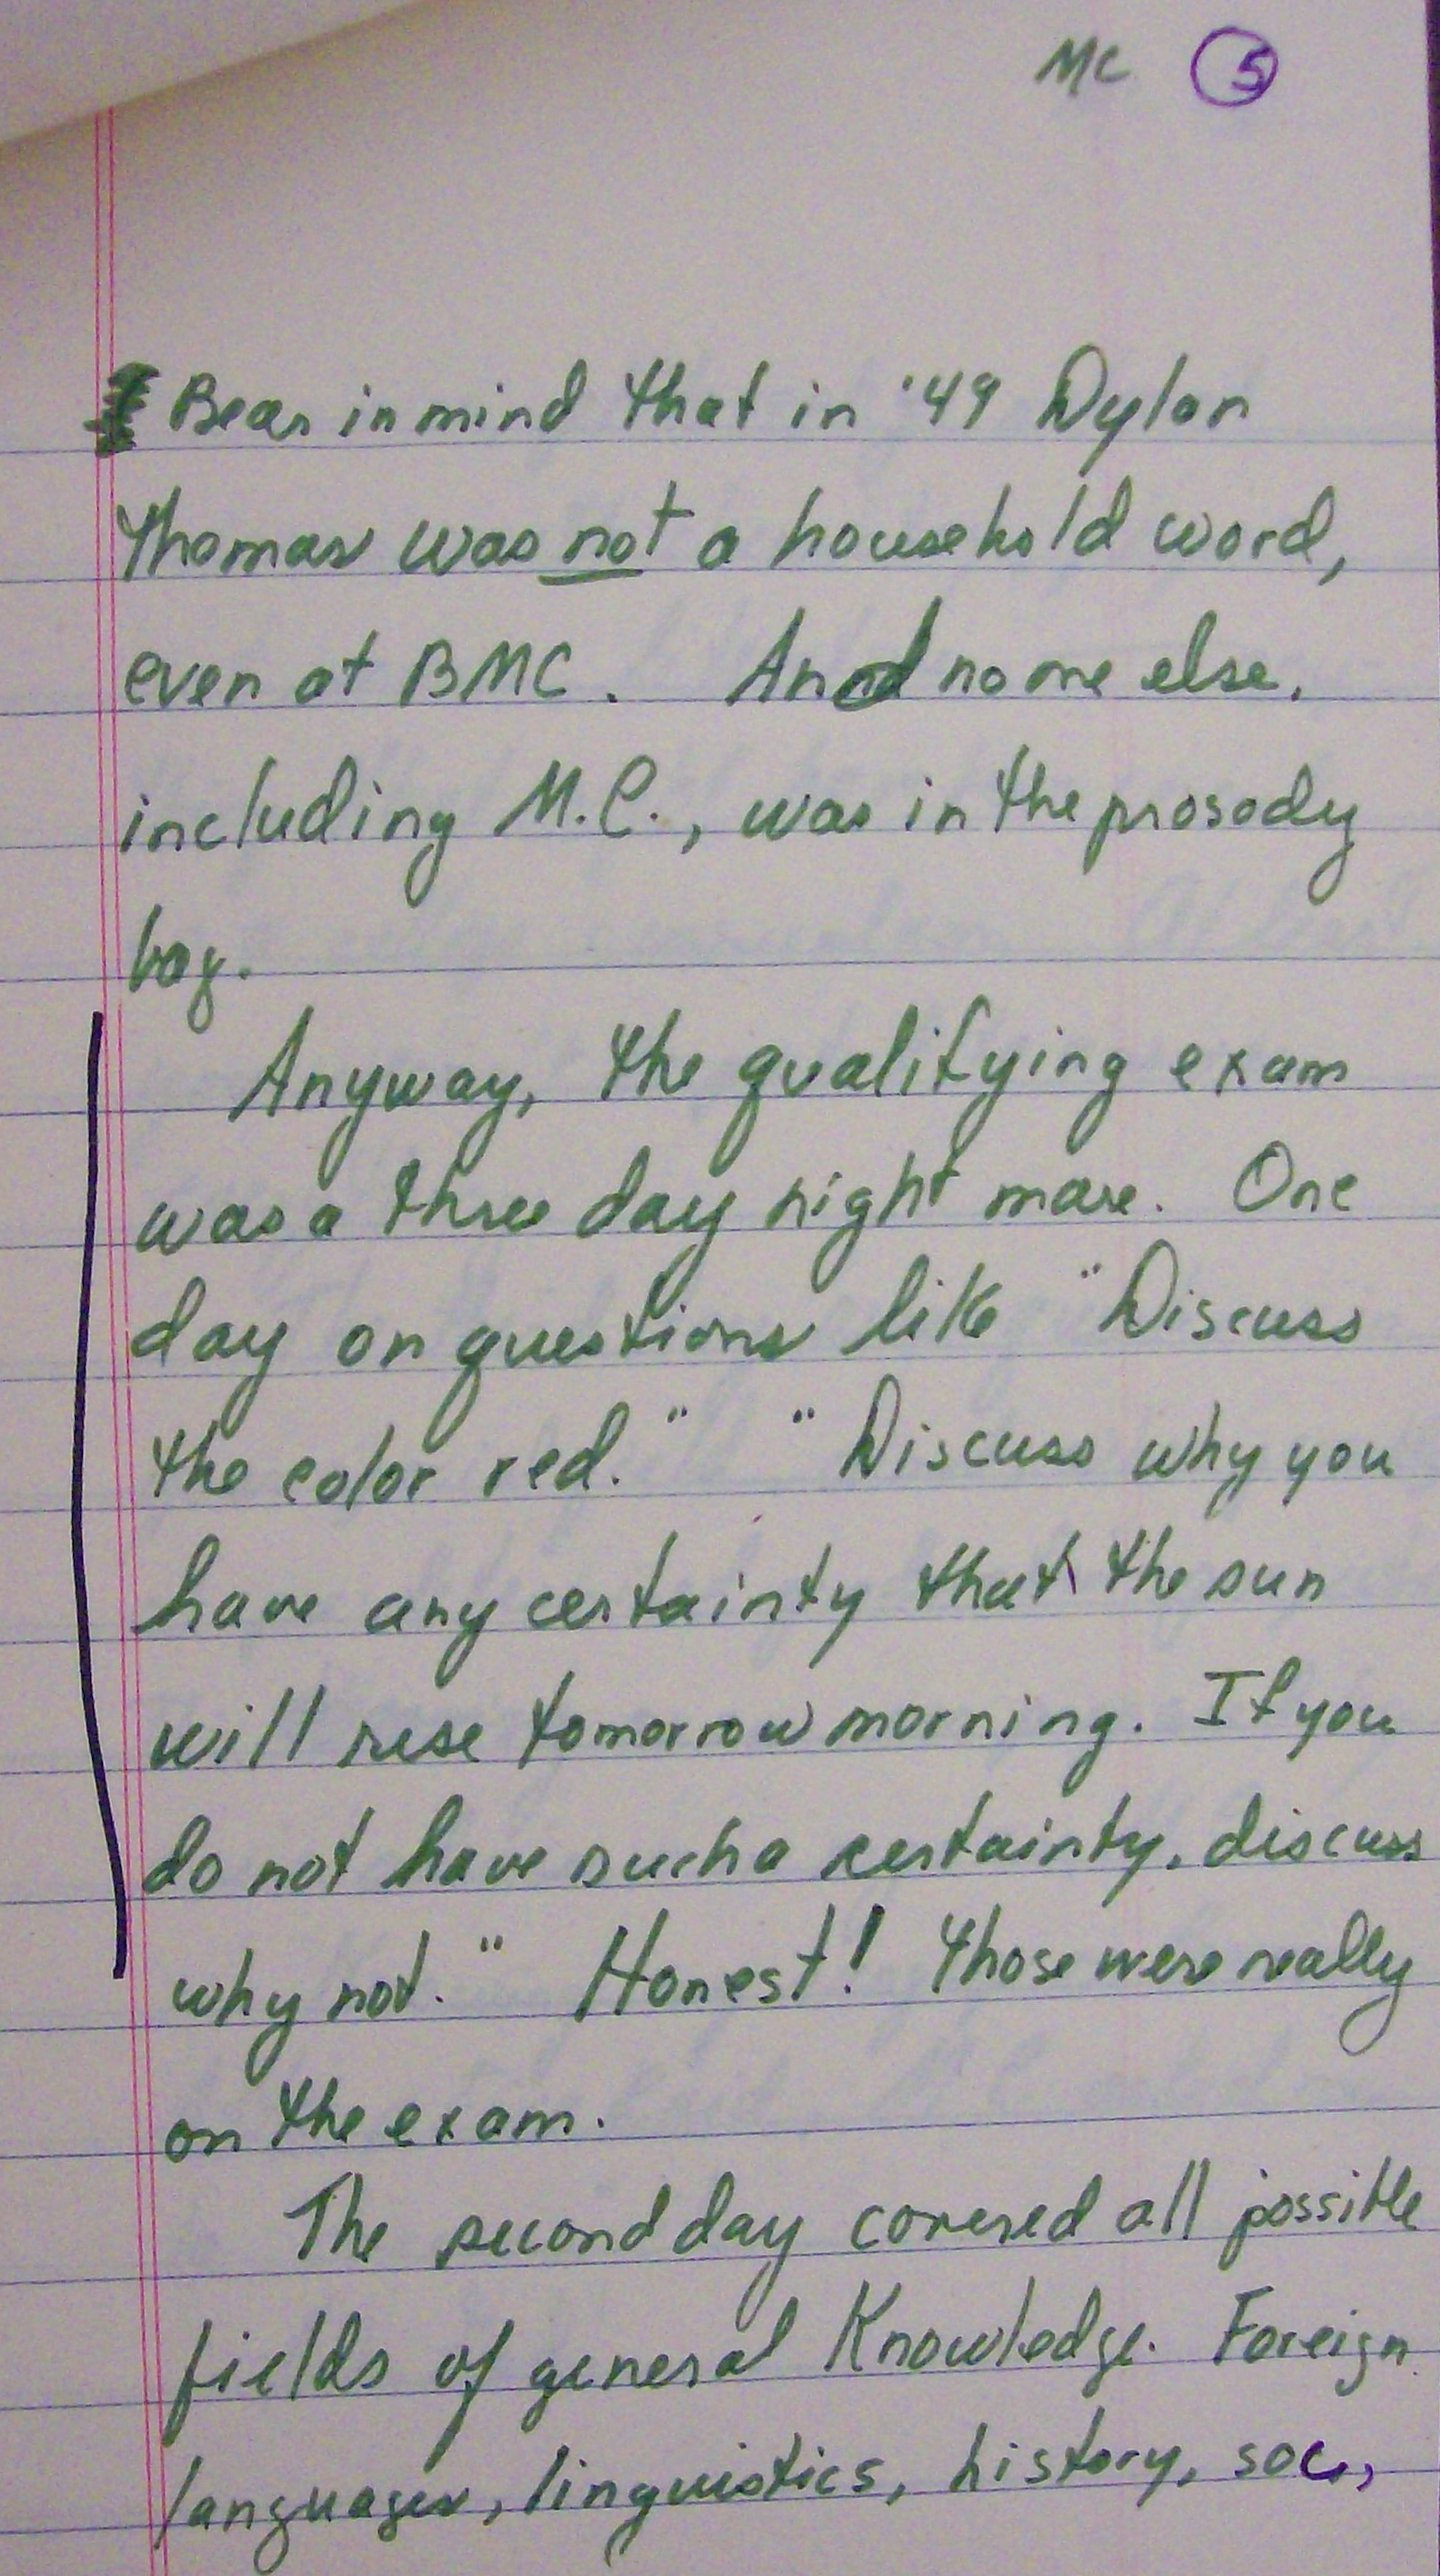 MC 5
Bear in mind that in '49 Dylan
Thomas was not a household word,
even at BMC. And no one else,
including M.C., was in the prosody
bag.
Anyway, the qualifying exam
was a three day night mare. One
day on questions like "Discuss
the color red." "Discuss why you
have any certainty that the sun
will rise tomorrow morning. If you
do not have such a certainty, discuss
why not." Honest! Those were really
on the exam.
The second day covered all possible
fields of general Knowledge. Foreign
languages, linguistics, history, soc.,